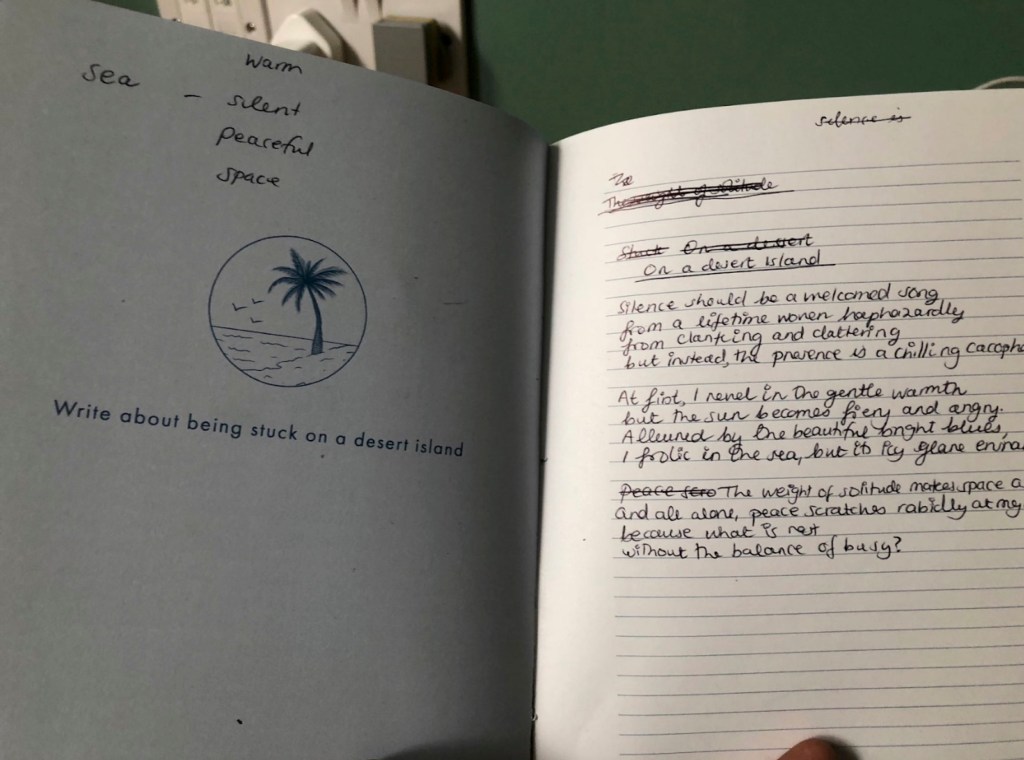 warm
sea – silent
peaceful
space
Write about being stuck on a desert island
silence is
The
The weight of solitude
Stuck On a desert
On a desert island
Silence should be a welcomed song
from a lifetime woven haphazardly
from clanking and clattering
but instead, the presence is a chilling
At first, I revel in the gentle warmth
but the sun becomes fiery and angry.
Allured by the beautiful bright blues,
I frolic in the sea, but its icy glare
Peace The weight of solitude makes space a
and all alone, peace scratches rabidly at my
because what is rest
without the balance of busy?